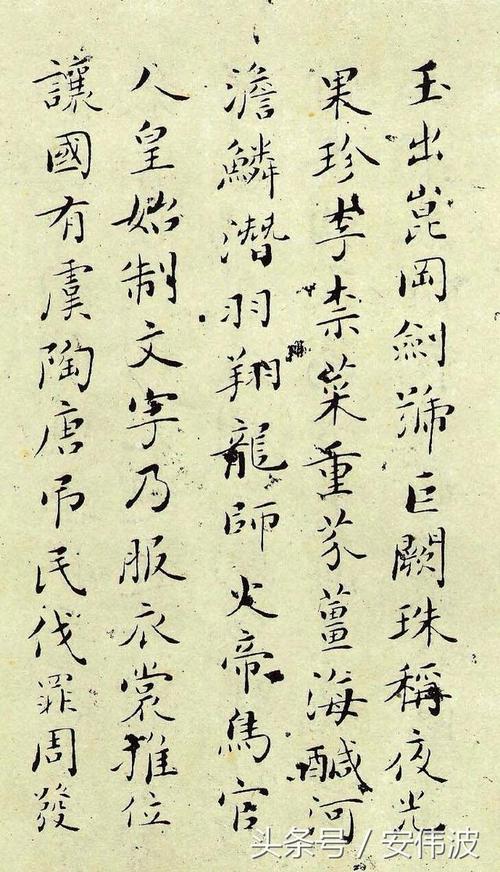 玉出崑岡劍號巨闕珠稱夜光
果珍李柰菜重芥薑海鹹河
澹鱗潛羽翔龍師火帝鳥官
人皇始制文字乃服衣裳推位
讓國有虞陶唐吊民伐罪周發
头条号 / 安伟波